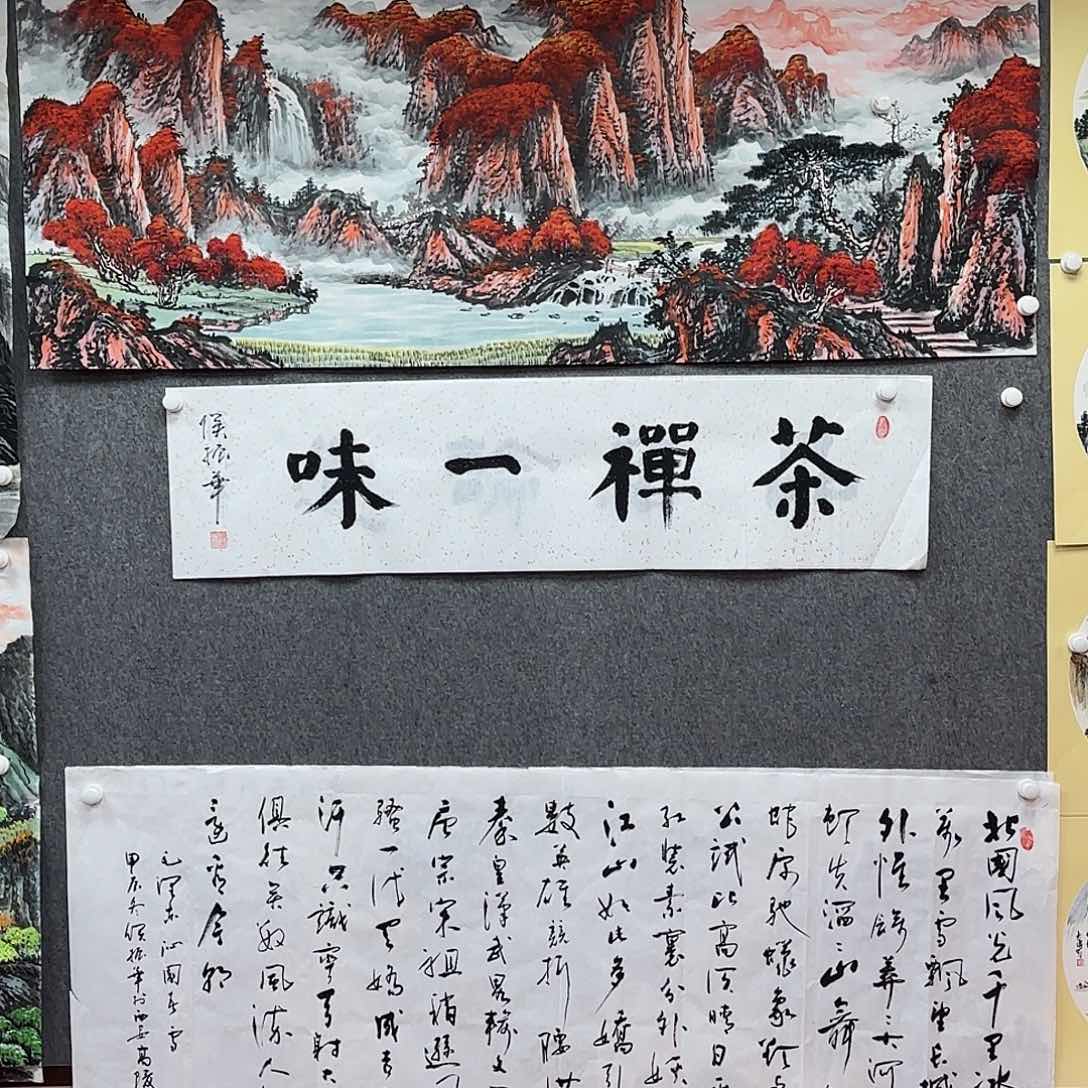 茶禪一味
侯振華
北國風光千里冰
萬里雪飄望長城
外惟餘莽〻大河
頓失滔〻山舞
蛇原馳蠟象欲与
公試比高須晴日
紅裝素裹分外妖
江山如此多嬌引
數英雄競折腰惜
秦皇漢武略輸文
唐宗宋祖稍遜
騷一代天嬌成吉
汗只識彎弓射大
俱往矣数風流人
還看今朝
毛澤东沁園春雪
甲辰冬侯振華於西安高陵